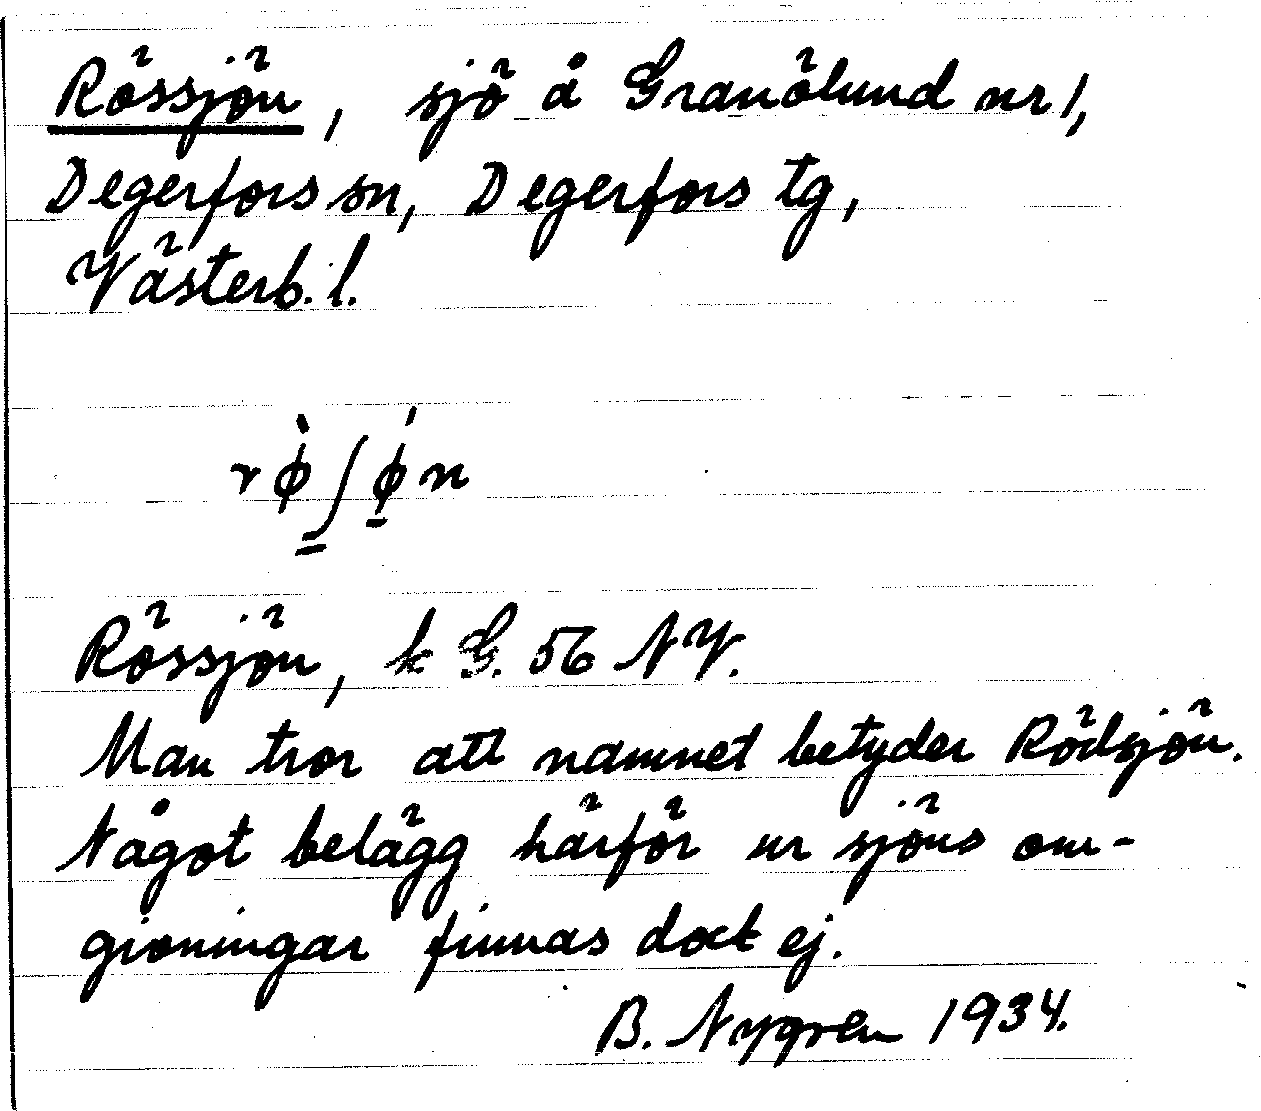 Rössjön, sjö å Granölund nr 1,
Degerfors sn, Degerfors tg,
Västerb. l.
rø̀ʃǿn
Rössjön, k G. 56 NV.
Man tror att namnet betyder Rödsjön.
Något belägg härför ur sjöns om-
givningar finnas dock ej.
B. Nygren 1934.